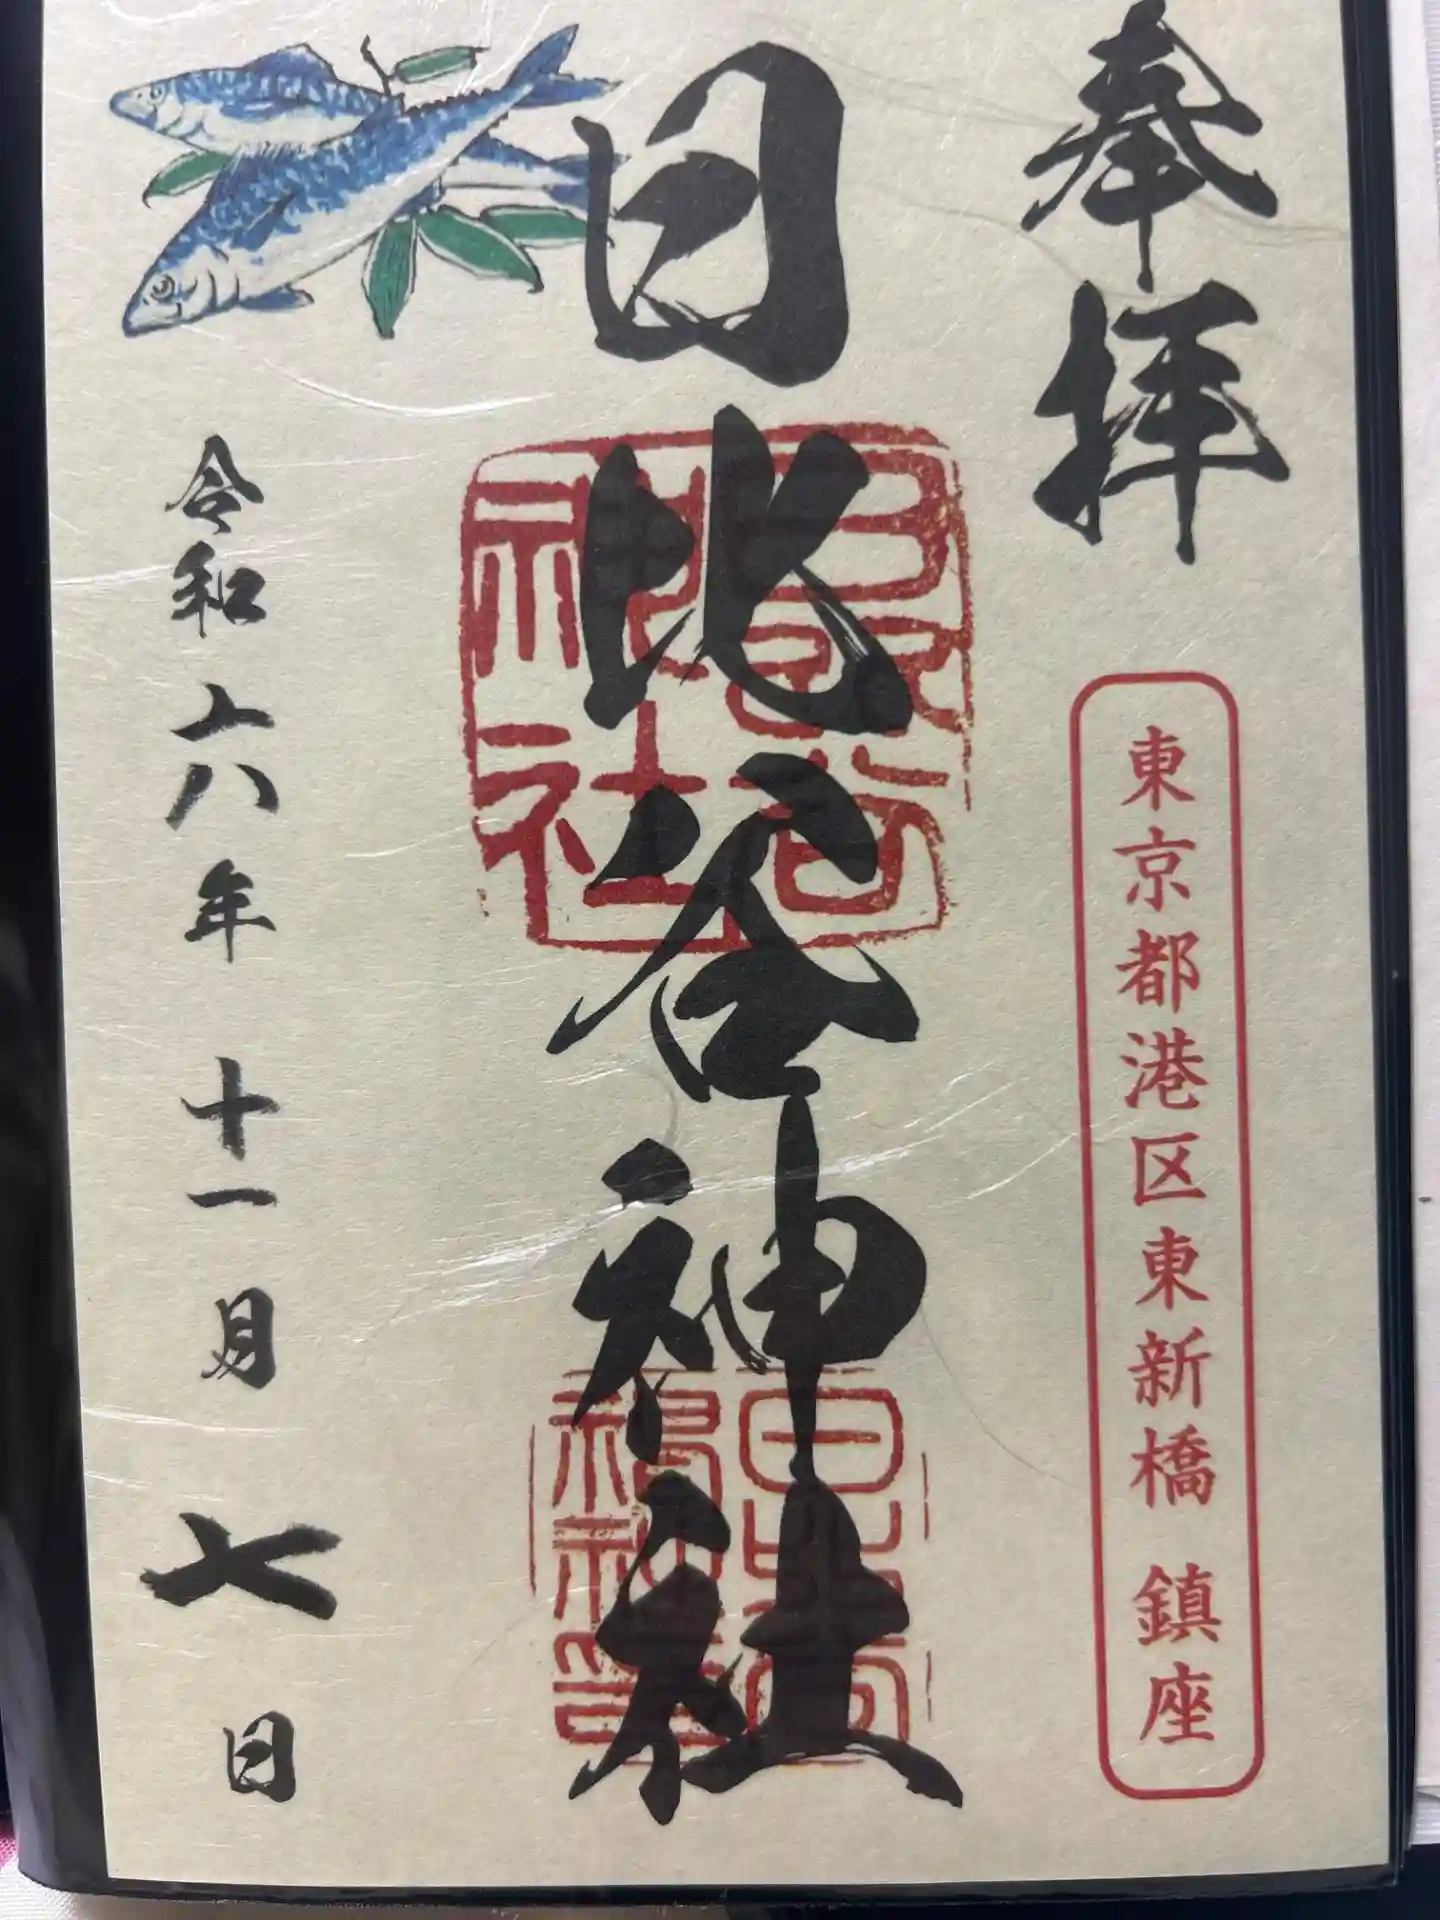 奉拝
東京都港区東新橋 鎮座
日比谷神社
令和六年 十一月 七日